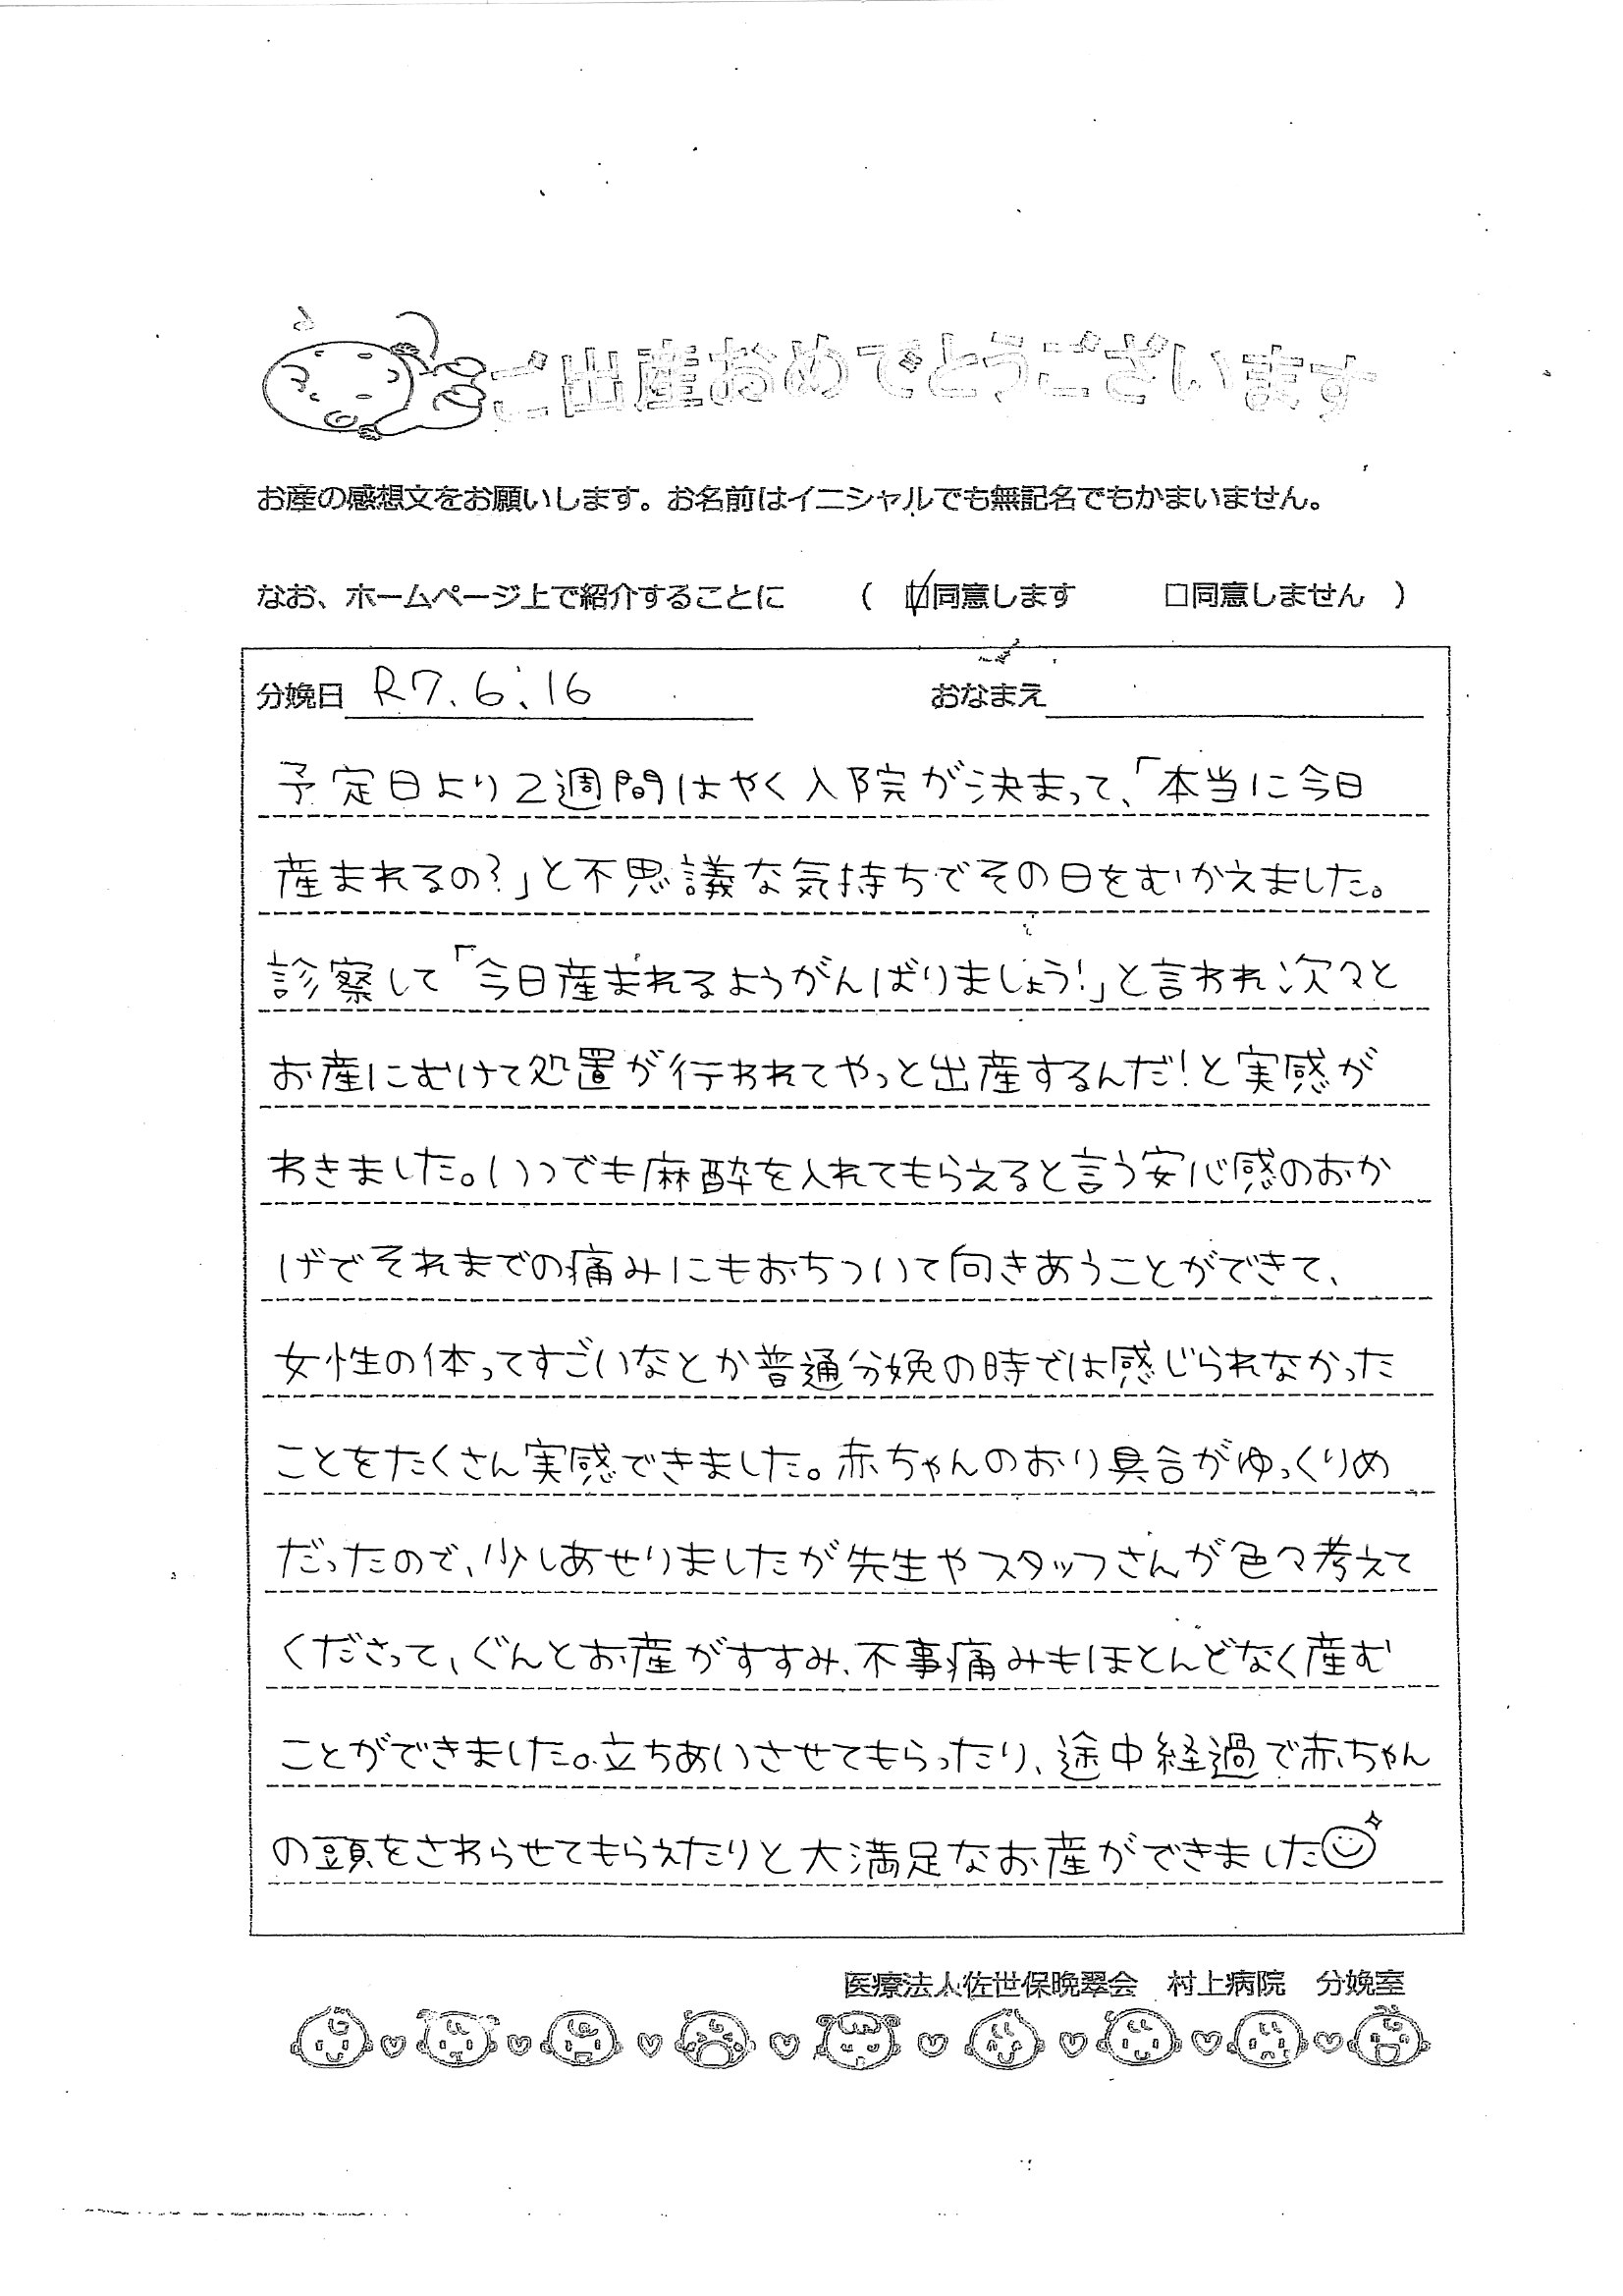 ご出産おめでとうございます
お産の感想文をお願いします。お名前はイニシャルでも無記名でもかまいません。
なお、ホームページ上で紹介することに ( ☑同意します □同意しません )
分娩日 R7.6.16 おなまえ
予定日より2週間はやく入院が決まって、「本当に今日
産まれるの?」と不思議な気持ちでその日をむかえました。
診察して「今日産まれるようがんばりましょう!」と言われ次々と
お産にむけて処置が行われてやっと出産するんだ!と実感が
わきました。いつでも麻酔を入れてもらえると言う安心感のおか
げでそれまでの痛みにもおちついて向きあうことができて、
女性の体ってすごいなとか普通分娩の時では感じられなかった
ことをたくさん実感できました。赤ちゃんのおり具合がゆっくりめ
だったので、少しあせりましたが先生やスタッフさんが色々考えて
くださって、ぐんとお産がすすみ、不事痛みもほとんどなく産む
ことができました。立ちあいさせてもらったり、途中経過で赤ちゃん
の頭をさわらせてもらえたりと大満足なお産ができました☺
医療法人佐世保晩翠会 村上病院 分娩室